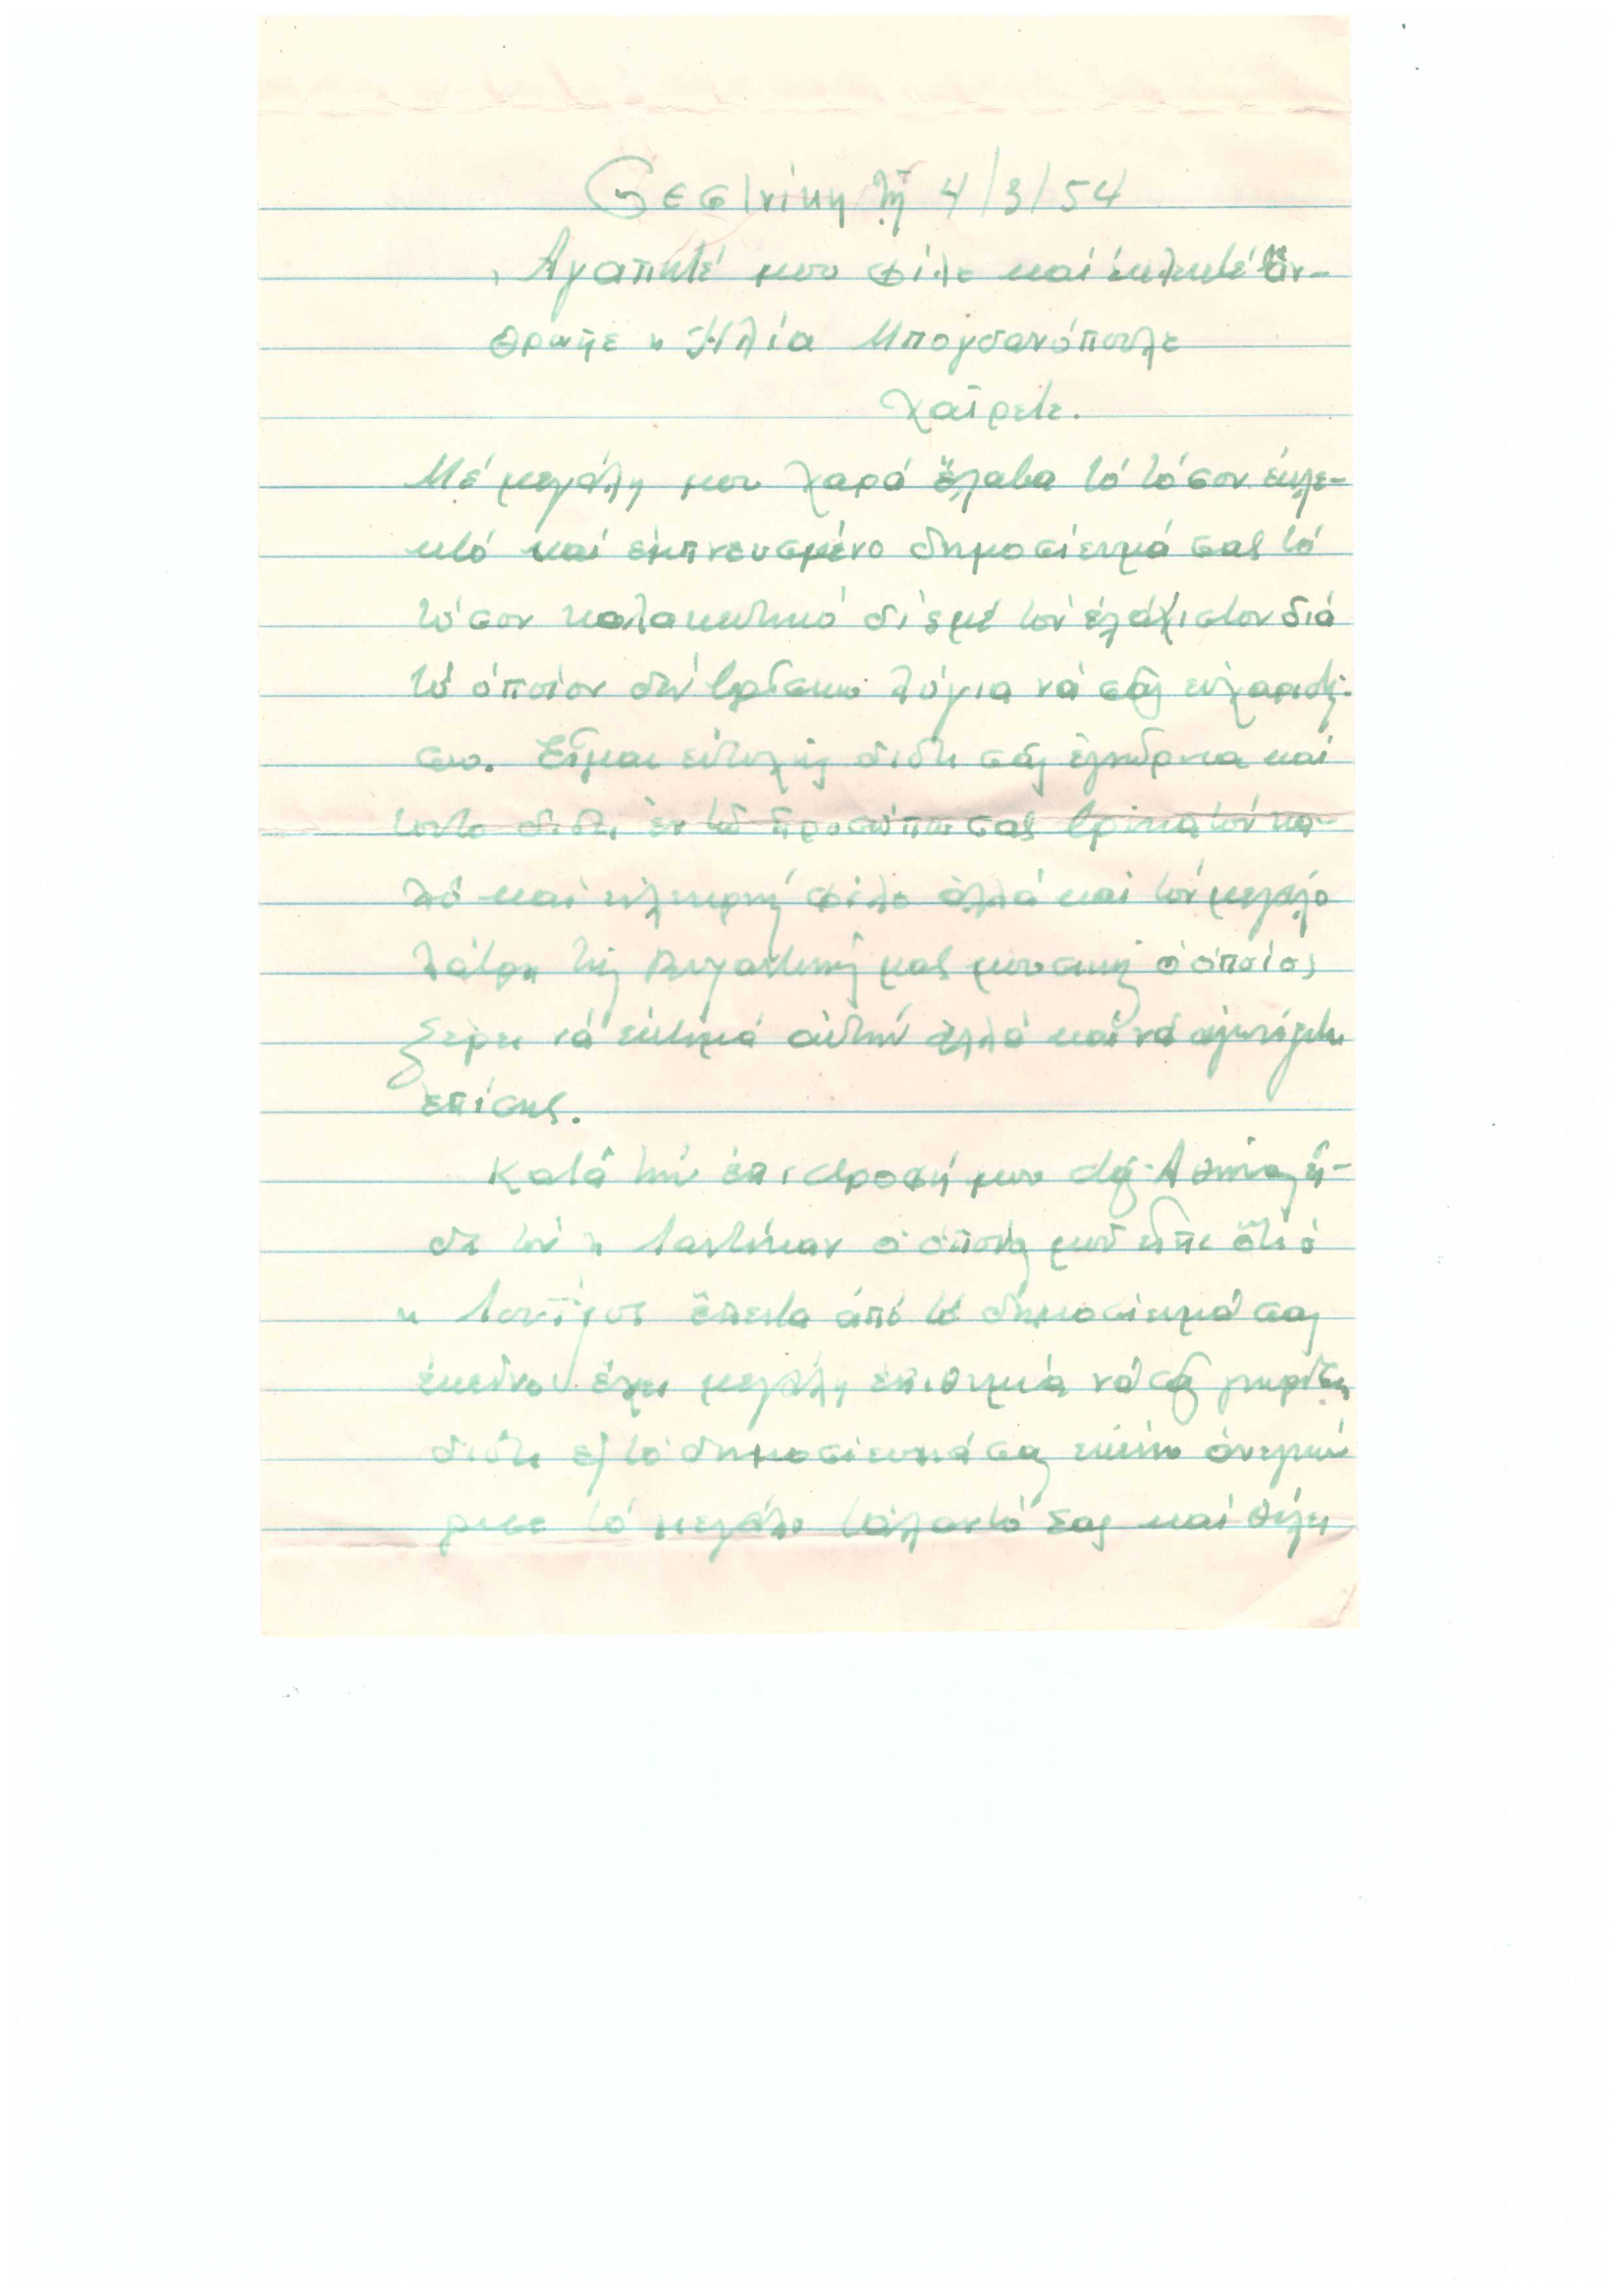 Θεσ/νίκη τῇ 4/3/54
Ἀγαπητέ μου φίλε καί ἐκλεκτέ ἄν-
θρωπε κ Ἠλία Μπογδανόπουλε
Χαῖρετε.
Μέ μεγάλη μου χαρά ἔλαβα τό τόσον ἐκλε-
κτό καί ἐμπνευσμένο δημοσίευμά σας τό
τόσον κολακευτικό δι' ἐμέ τόν ἐλάχιστον διά
τό ὁποίον δέν βρίσκω λόγια νά σᾶς εὐχαριστή-
σω. Εἶμαι εὐτυχής διότι σᾶς ἐγνώρισα καί
τοῦτο διότι ἐν τῷ προσώπω σας βρῆκα τόν κα-
λό καί εἰλικρινῆ φίλο ἀλλά καί τόν μεγάλο
λάτρη τῆς Βυζαντινῆς μας μουσικῆς ὁ ὁποίος
ξέρει νά ἐκτιμά αὐτήν ἀλλά καί νά ἀγωνίζεται
ἐπίσης.
Κατά τήν ἐπιστροφή μου στάς Ἀθήνας εἶ-
δα τόν κ ὁ ὁποίος μοῦ εἶπε ὅτι ὁ
κ ἔπειτα ἀπό τό δημοσίευμά σας
ἐκεῖνο ἔχει μεγάλη ἐπιθυμία νά σᾶς γνωρίσῃ
διότι εἰς τό δημοσίευμά σας ἐκεῖνο ἀνεγνώ-
ρισε τό μεγάλο τάλαντό σας καί θέλει